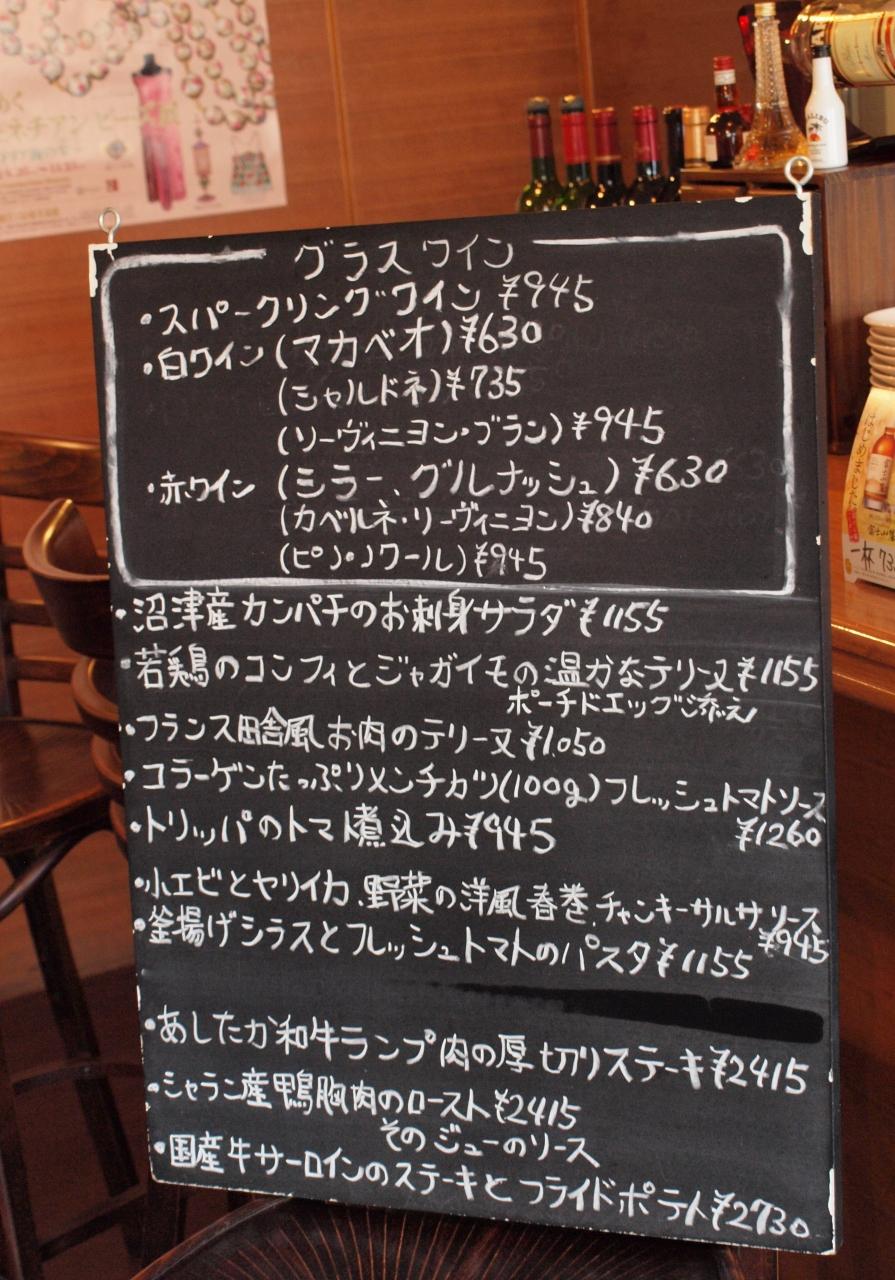 グラスワイン
・スパークリングワイン ¥945
・白ワイン(マカベオ)¥630
(シャルドネ)¥735
(ソーヴィニヨン・ブラン)¥945
・赤ワイン(シラー、グルナッシュ)¥630
(カベルネ・ソーヴィニヨン)¥840
(ピノ・ノワール)¥945
・沼津産カンパチのお刺身サラダ¥1155
・若鶏のコンフィとジャガイモの温かなテリーヌ¥1155
ポーチドエッグ添え
・フランス田舎風お肉のテリーヌ¥1,050
・コラーゲンたっぷりメンチカツ(100g)フレッシュトマトソース
¥1260
・トリッパのトマト煮込み¥945
・小エビとヤリイカ、野菜の洋風春巻 チャンキーサルサソース
¥945
・釜揚げシラスとフレッシュトマトのパスタ¥1155
・あしたか和牛ランプ肉の厚切りステーキ¥2415
・シャラン産鴨胸肉のロースト¥2415
そのジューのソース
・国産牛サーロインのステーキとフライドポテト¥2730
はじめました
一杯 73